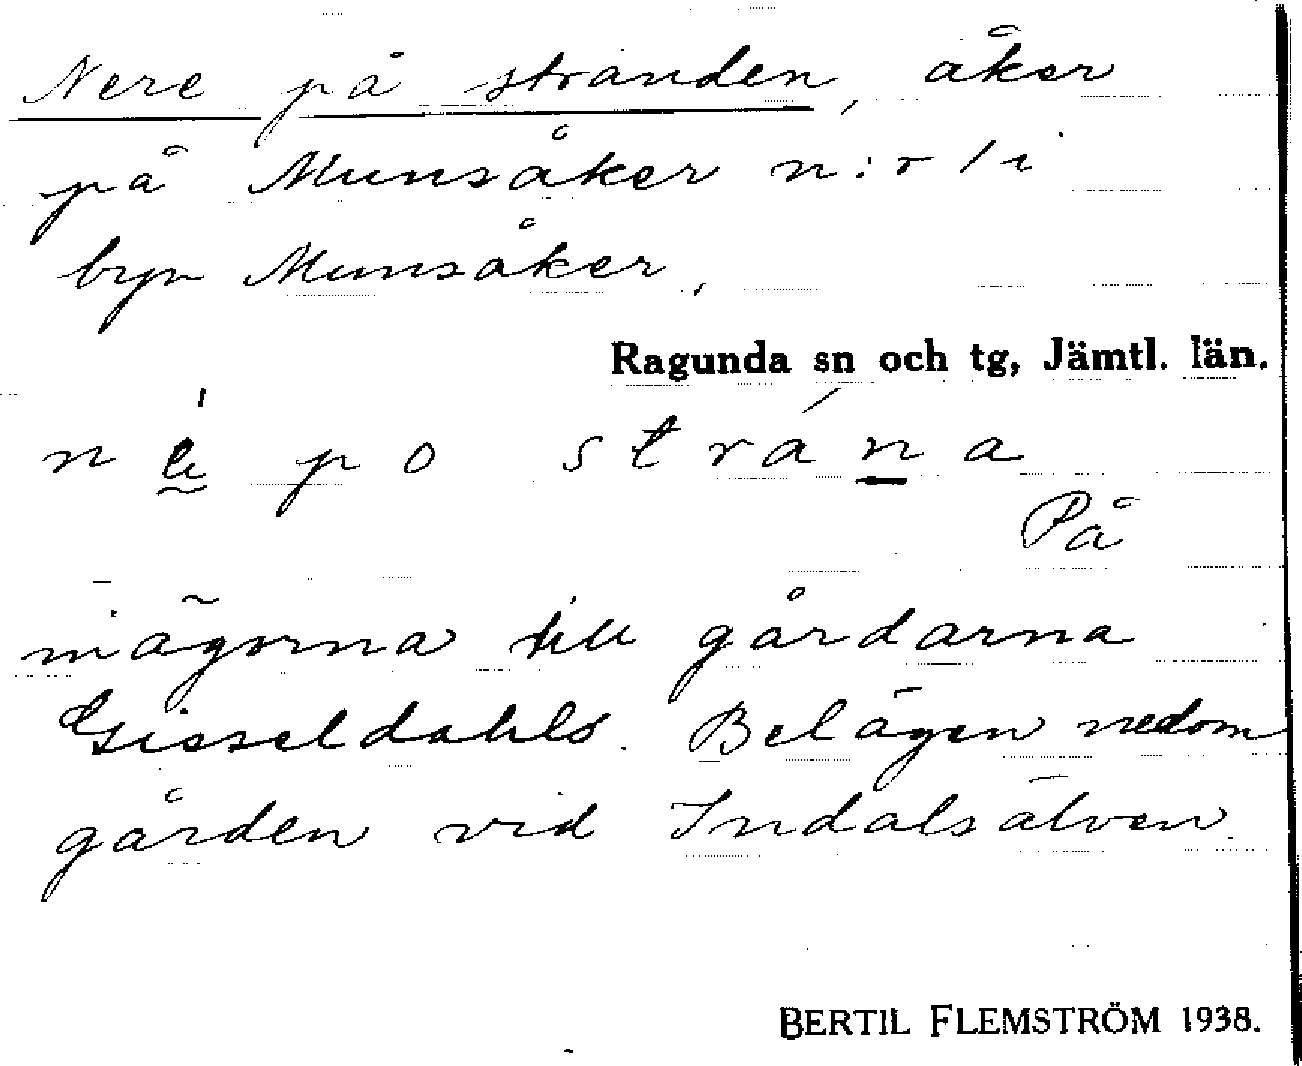 Nere på stranden, åker
på Munsåker n:r 1 i
byn Munsåker.
Ragunda sn och tg, Jämtl. län.
po strána
På
inägorna till gårdarna
Gisseldahls. Belägen nedom
gården vid Indalsälven.
BERTIL FLEMSTRÖM 1938.